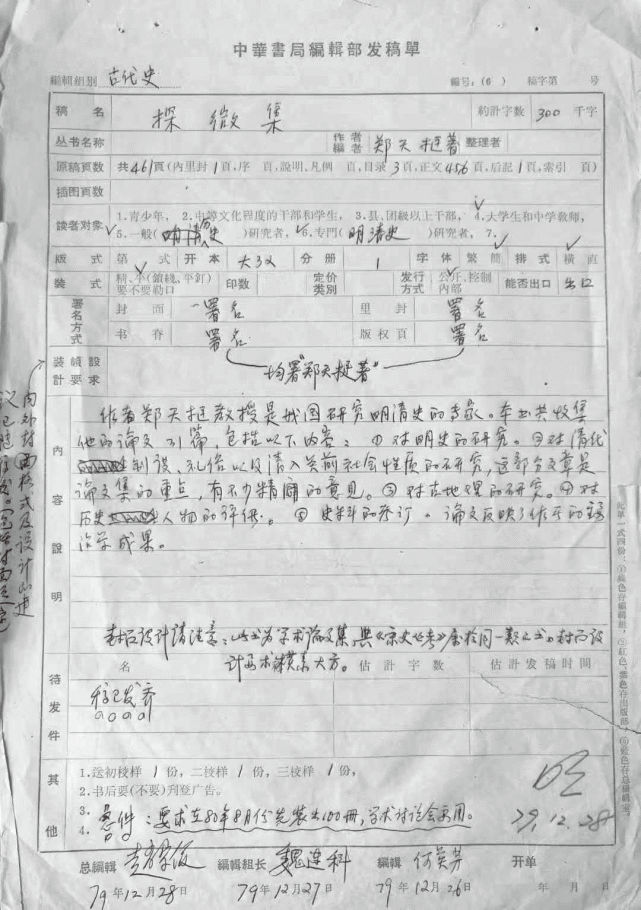 中華書局編輯部发稿單
編輯組別 古代史 編号:(6) 稿字第 号
稿 名 探微集 約計字数 300 千字
丛书名称 作者 編者 郑天挺著 整理者
原稿頁数 共461頁(內里封1頁,序 頁,說明、凡例 頁,目录3頁,正文456頁,后記1頁,索引 頁)
插图頁数
讀者对象 1.青少年, 2.中等文化程度的干部和学生, 3.县、团級以上干部, 4.大学生和中学教师,
5.一般( 明清史 )研究者, 6.专門( 明清史 )研究者, 7.
版 式 第 式 开 本 大32 分 册 1 字 体 繁 簡 排 式 橫 直
裝 式 精、平(鎖綫、平釘) 要不要勒口 印数 定价类别 发行方式 公开、控制 內部 能否出口 出口
署名方式 封 面 署名 里 封 署名
书 脊 署名 版 权 頁 署名
裝幀設計要求 均署"郑天挺著"
内外封面格式及设计
內容說明
作者郑天挺教授是我国研究明清史的专家。本书共收集
他的论文 篇,包括以下内容:①对明史的研究。②对清代
制设、礼俗以及清入关前社会性质的研究,这部分文章是
论文集的重点,有不少精辟的意见。③对古地理的研究。④对
历史人物的评价。⑤史料的考订。论文反映了作者的
治学成果。
封面设计请注意:此书为学术论文集,与《宋史丛考》属于同一类之书。封面设
计要求朴素大方。
待发件 名 估計字数 估計发稿时間
稿已发齐
其他
1.送初校样1份,二校样1份,三校样1份,
2.书后要(不要)刋登广告。
3.
4. 急件:要求在80年8月份先装出100册,学术讨论会要用。
79.12.28
总編輯 赵守俨 編輯組长 魏连科 編輯 何英芳 开单
79年12月28日 79年12月27日 79年12月26日 年 月 日
此單一式四份: